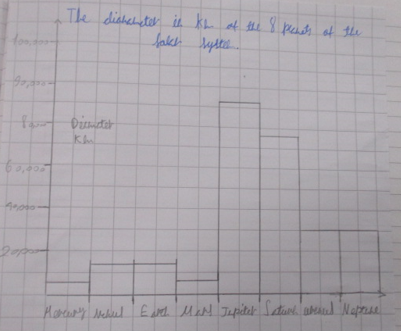 The diameter in km of the 8 planets of the
Solar System.
100,000
90,000
80,000
Diameter
Km
60,000
40,000
20,000
Mercury Venus Earth Mars Jupiter Saturn Uranus Neptune